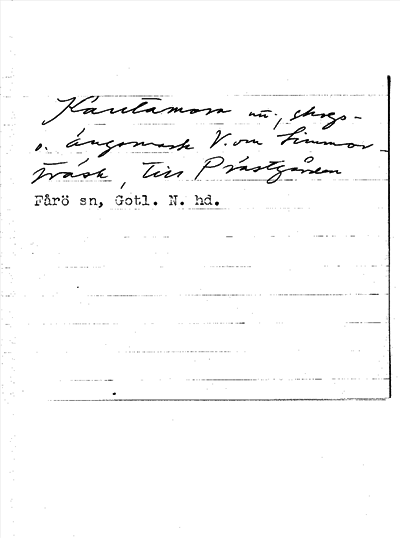 nu., skogs-
o. ängsmark V. om Limmor-
träsk, till Prästgården
Fårö sn, Gotl. N. hd.